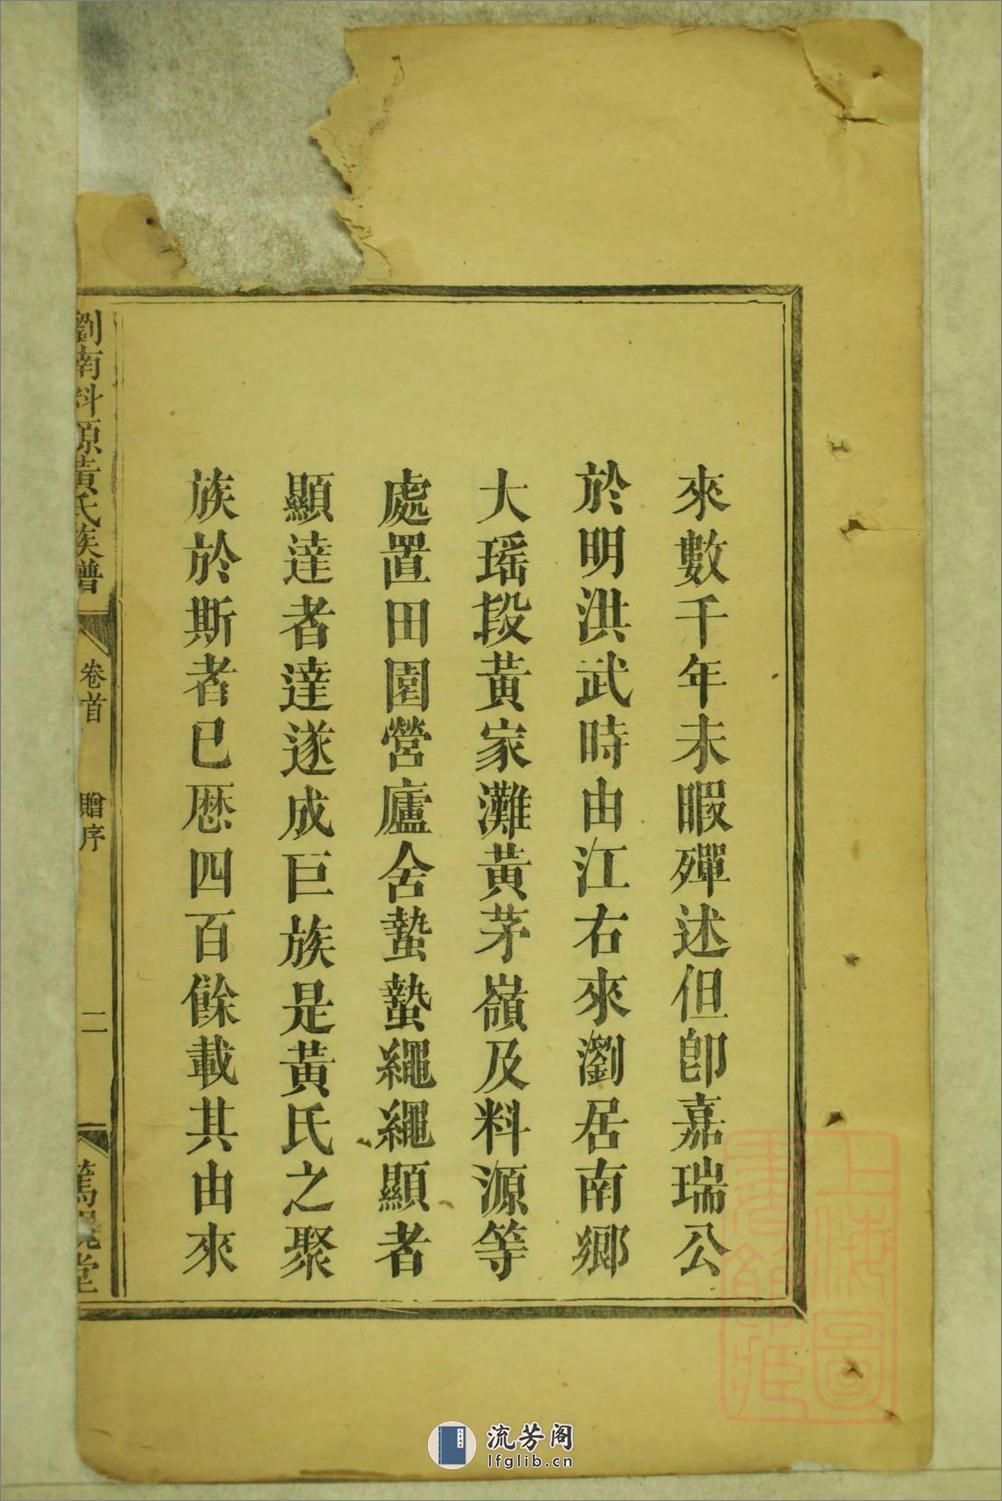 來數千年未暇殫述但卽嘉瑞公
於明洪武時由江右來瀏居南鄉
大瑶段黃家灘黃茅嶺及料源等
處置田園營廬舍蟄蟄繩繩顯者
顯達者達遂成巨族是黃氏之聚
族於斯者已歷四百餘載其由來
瀏南料源黃氏族譜
卷首 贈序
二
篤親堂
上海圖書館藏
流芳阁
lfglib.cn